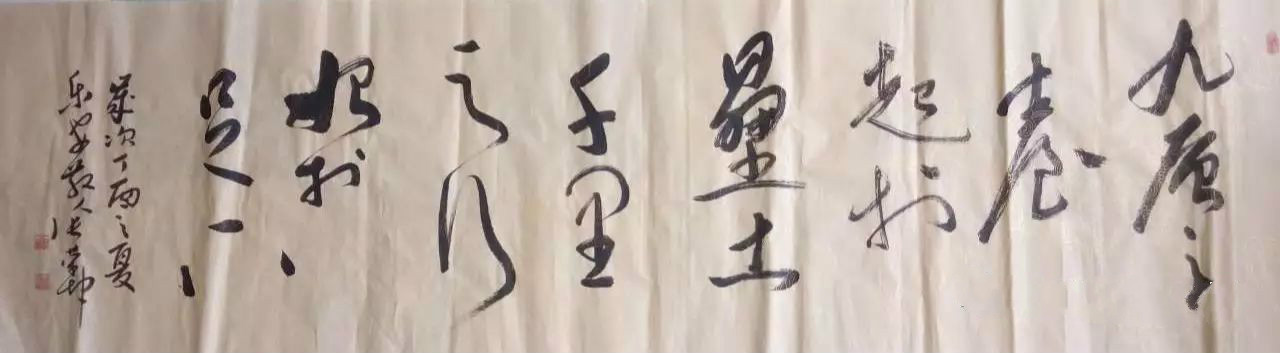 九層之
臺
起於
壘土
千里
之行
始於
足下
歲次丁酉之夏
散人張